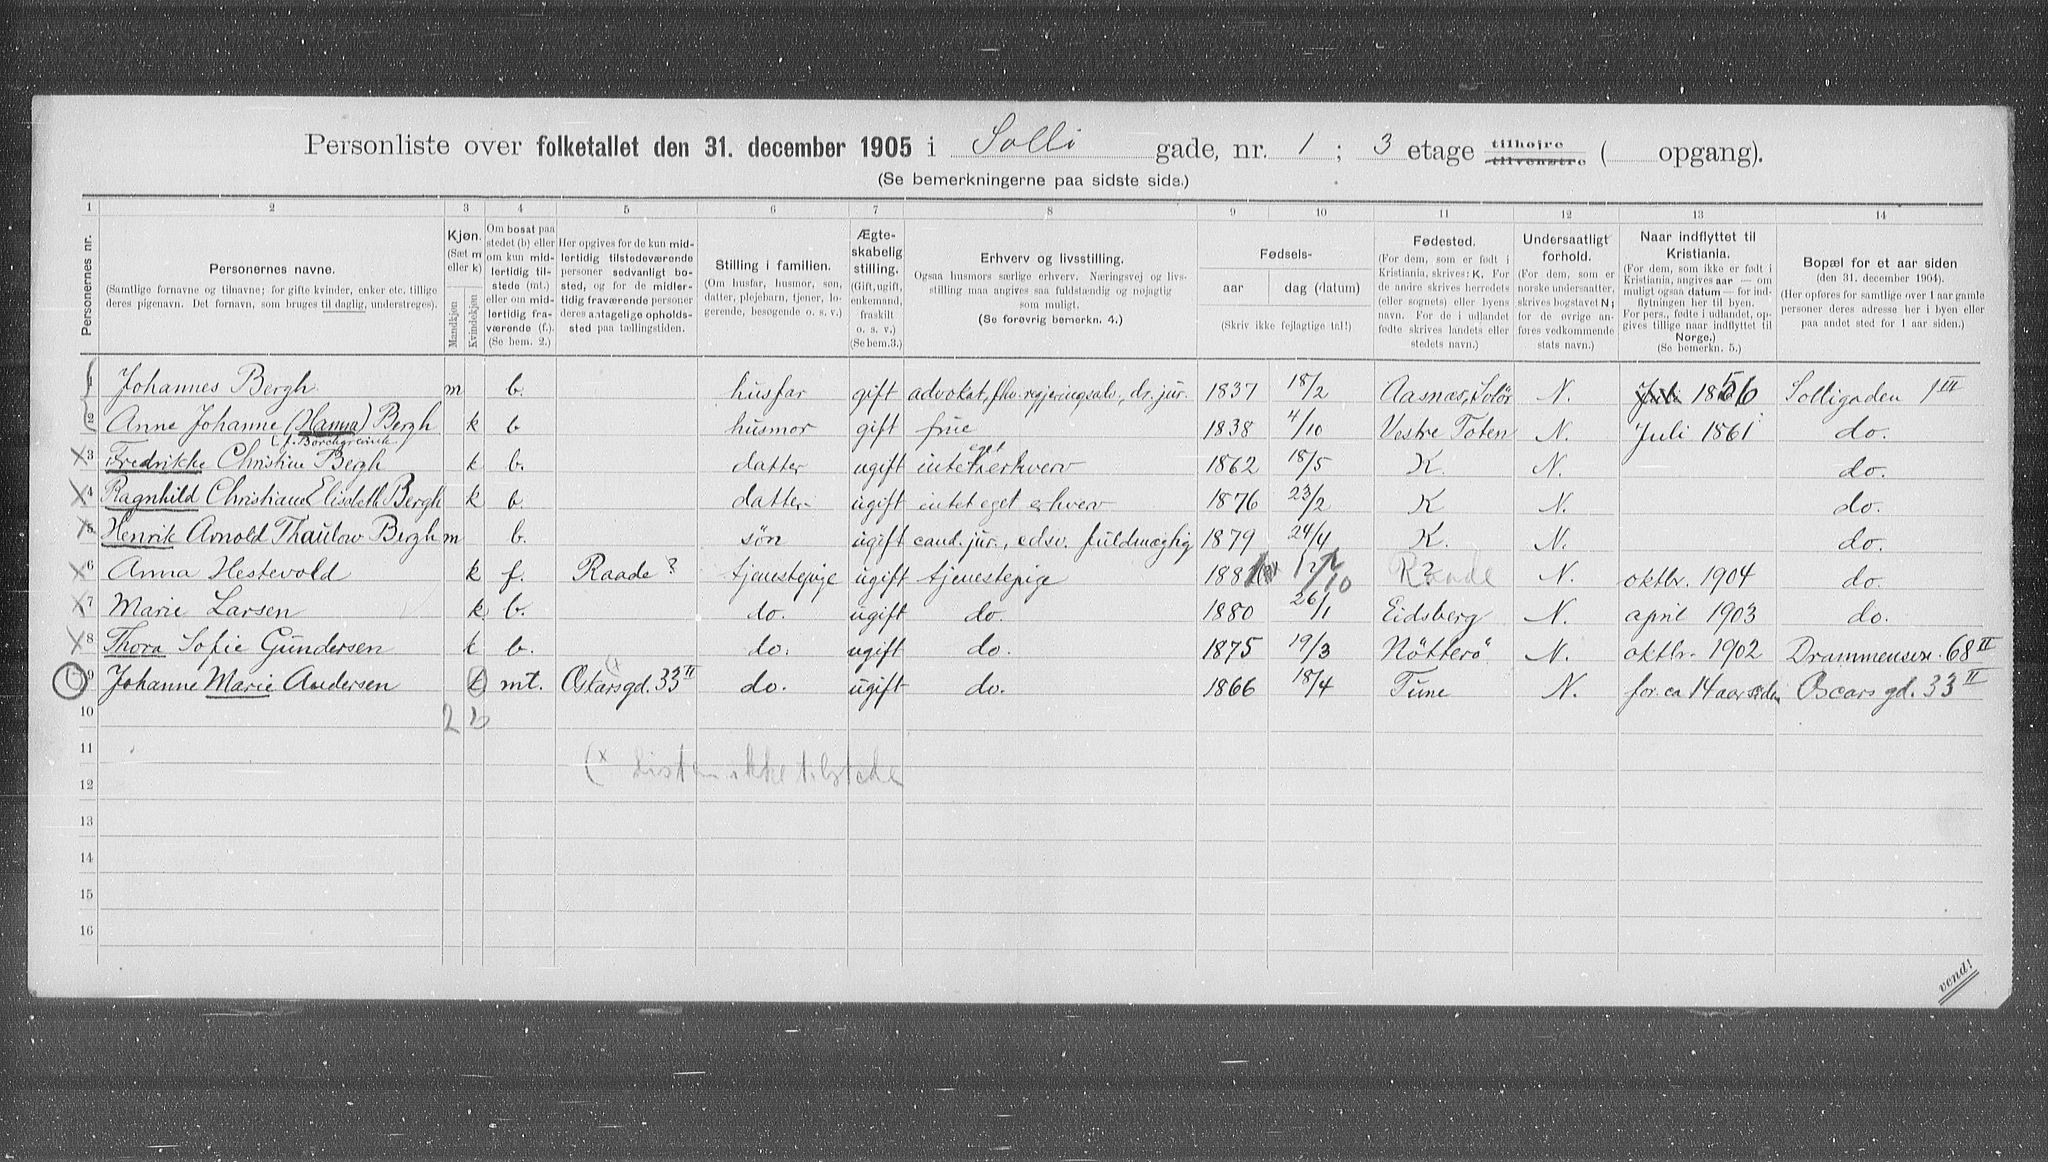 Personliste over folketallet den 31. december 1905 i Solli gade, nr. 1 ; 3 etage tilhøjre tilvenstre ( opgang).
(Se bemerkningerne paa sidste side.)
1 2 3 4 5 6 7 8 9 10 11 12 13 14
Personernes nr.
Personernes navne.
(Samtlige fornavne og tilnavne; for gifte kvinder, enker etc. tillige
deres pigenavn. Det fornavn, som bruges til daglig, understreges).
Kjøn.
(Sæt m
eller k)
Mandkjøn
Kvindekjøn
Om bosat paa
stedet (b) eller
om kun mid-
lertidig til-
stede (mt.)
eller om mid-
lertidig fra-
værende (f.).
(Se bem. 2.)
Her opgives for de kun mid-
lertidig tilstedeværende
personer sedvanligt bo-
sted, og for de midler-
tidig fraværende personer
deres antagelige opholds-
sted paa tællingstiden.
Stilling i familien.
(Om husfar, husmor, søn,
datter, plejebarn, tjener, lo-
gerende, besøgende o. s. v.)
Ægte-
skabelig
stilling.
(Gift, ugift,
enkemand,
fraskilt
o. s. v.)
(Se bem.3.)
Erhverv og livsstilling.
Ogsaa husmors særlige erhverv. Næringsvej og livs-
stilling maa angives saa fuldstændig og nøjagtig
som muligt.
(Se forøvrig bemerkn. 4.)
Fødsels-
aar dag (datum)
(Skriv ikke fejlagtige tal!)
Fødested.
(For dem, som er født i
Kristiania, skrives: K. For
de andre skrives herredets
(eller sognets) eller byens
navn. For de i udlandet
fødte skrives landets eller
stedets navn.)
Undersaatligt
forhold.
(For dem, som er
norske undersaatter,
skrives bogstavet N;
for de øvrige an-
føres vedkommende
stats navn.)
Naar indflyttet til
Kristiania.
(For dem, som ikke er født i
Kristiania, angives aar — om
muligt ogsaa datum — for ind-
flytningen her til byen.
For pers., fødte i udlandet, op-
gives tillige naar indflyttet til
Norge.)
(Se bemerkn. 5.)
Bopæl for et aar siden
(den 31. december 1904).
(Her opføres for samtlige over 1 aar gamle
personer deres adresse her i byen eller
paa andet sted for 1 aar siden.)
1 Johannes Bergh m b. husfar gift advokat, fhv. regjeringsadv., dr. jur. 1837 18/2 Aasnas, Solør N. Juli 1856 Solligaden 1 III
2 Anne Johanne (Hanna) Bergh k b husmor gift frue 1838 4/10 Vestre Toten N. Juli 1861 do.
f. Borchgrevink
3 Fredrikke Christine Bergh k b. datter ugift intet eget erhverv 1862 18/5 K N. do.
4 Ragnhild Christiane Elisabeth Bergh k b. datter ugift intet eget erhverv 1876 23/2 K N. do.
5 Henrik Arnold Thaulow Bergh m b. søn ugift cand. jur., edsv. fuldmægtig 1879 24/4 K. N. do.
6 Anna Hestevold k f. Raade? tjenestepige ugift tjenestepige 188 /10 Raade N. oktbr. 1904 do.
7 Marie Larsen k. b. do. ugift do. 1880 26/1 Eidsberg N. april 1903 do.
8 Thora Sofie Gundersen k b. do. ugift do. 1875 19/3 Nötterö N. oktbr. 1902 Drammensvn. 68 II
9 Johanne Marie Andersen k mt. Oscarsgd. 33 II do. ugift do. 1866 18/4 Tune N. for ca 14 aar siden Oscars gd. 33 II
10 2
11
(x Listen ikke tilstede
12
13
14
15
16
vend!